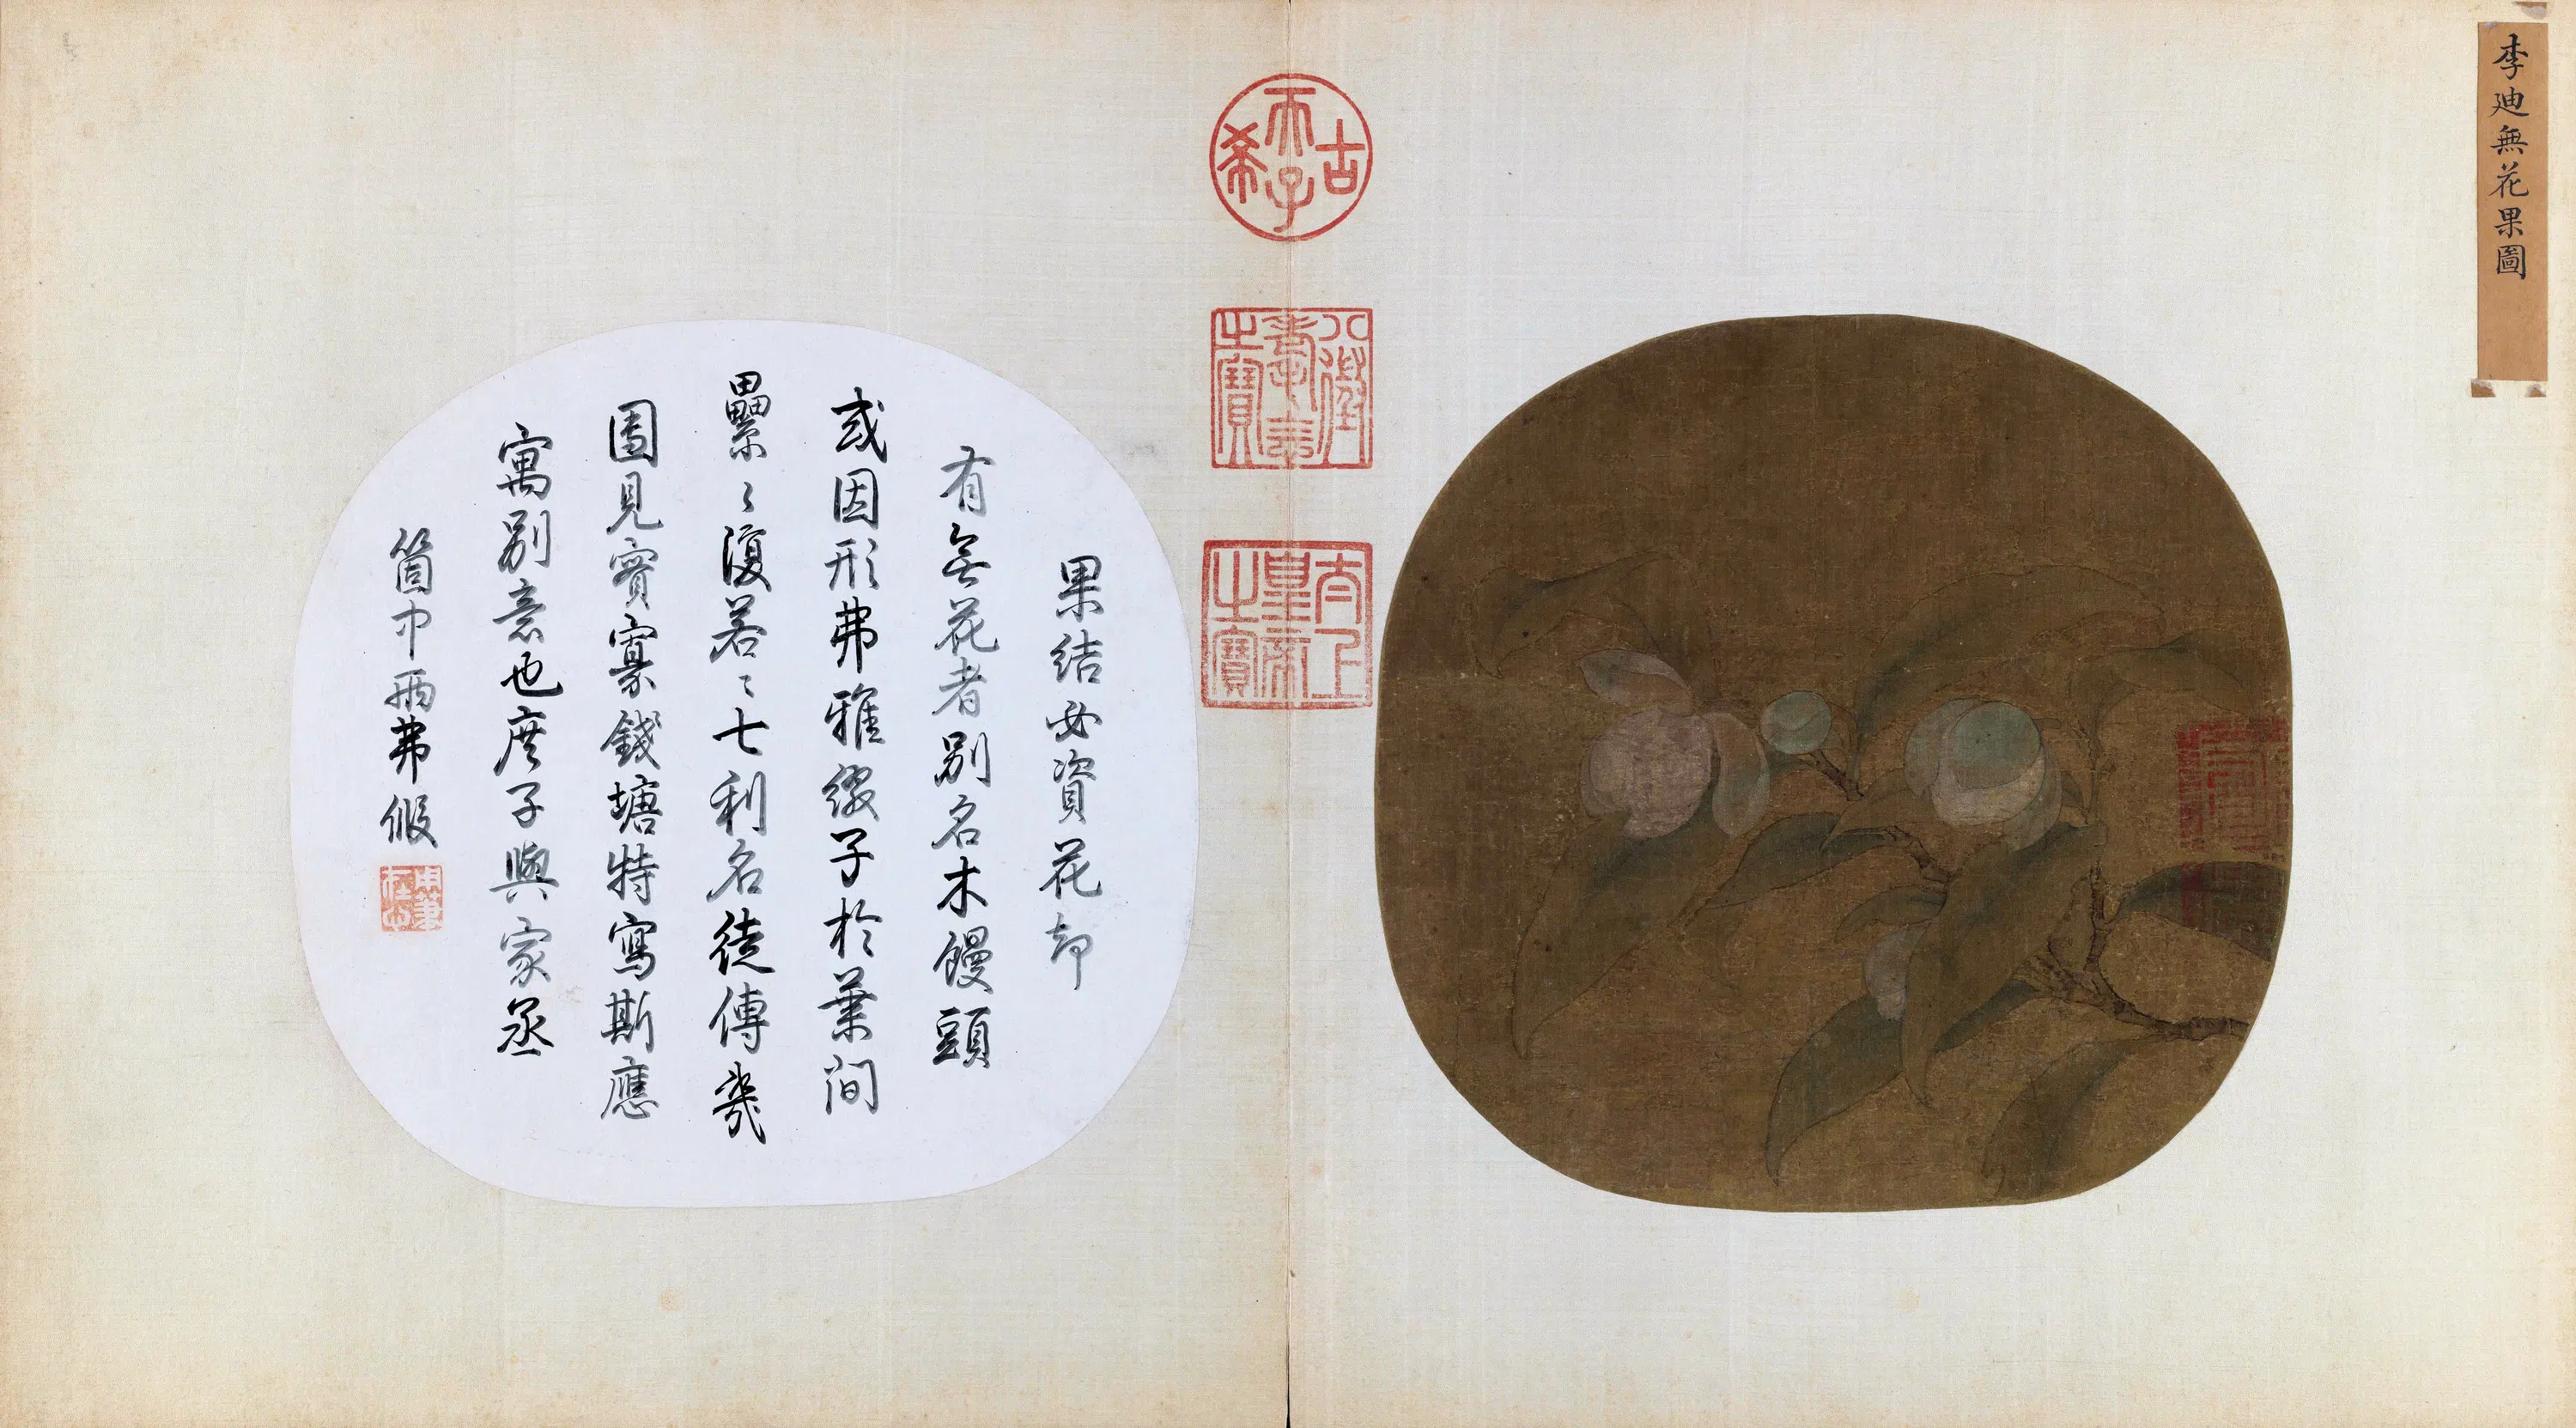 李迪無花果圖
古
天子
希
八徵
耄念
之寶
太上
皇帝
之寶
果結必資花却
有無花者別名木饅頭
或因形弗雅綴子於葉間
纍〻復若〻七利名徒傳幾
圖見實寡錢塘特寫斯應
寓別意也庶子與家丞
箇中兩弗假